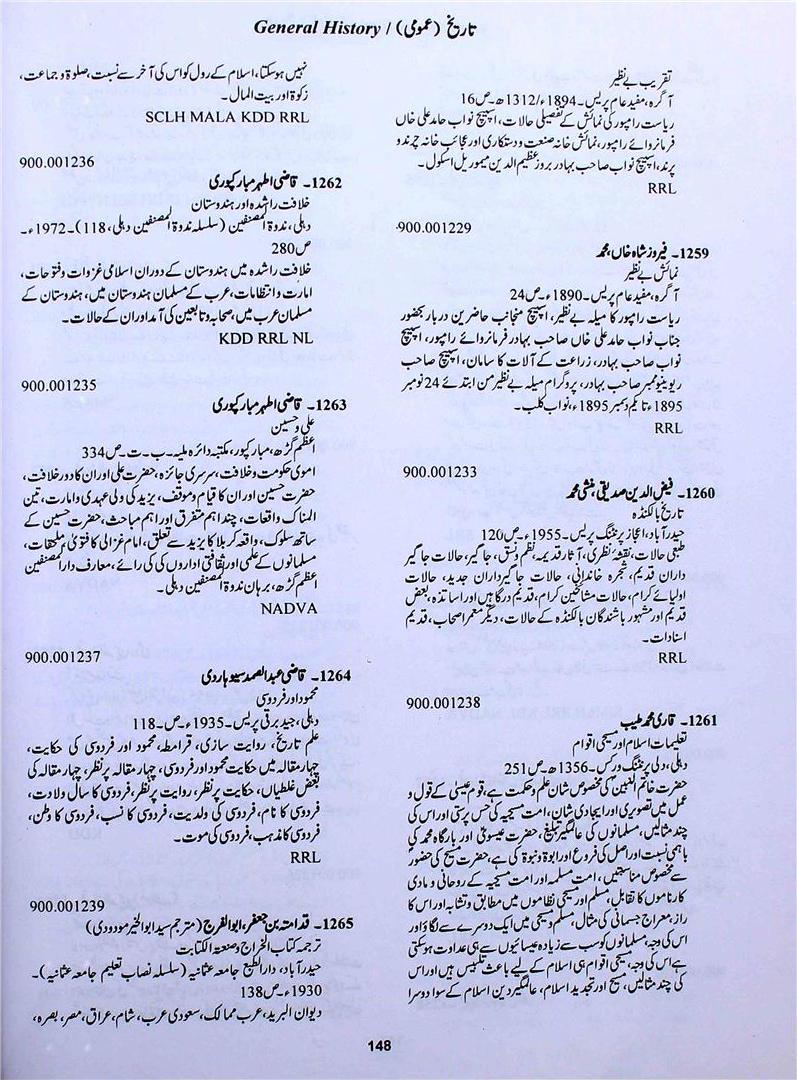 General History / تاریخ (عمومی)
تقریب بے نظیر
آگرہ، مفید عام پریس۔ 1894ء/1312ھ۔ ص16
ریاست رامپور کی نمائش کے تفصیلی حالات، اسپیچ نواب حامد علی خاں
فرمانروائے رامپور، نمائش خانہ صنعت و دستکاری اور عجائب خانہ چرند و
پرند، اسپیچ نواب صاحب بہادر بروز عظیم الدین میموریل اسکول۔
RRL
900.001229
1259۔ فیروز شاہ خاں، محمد
نمائش بے نظیر
آگرہ، مفید عام پریس۔ 1890ء۔ ص24
ریاست رامپور کا میلہ بے نظیر، اسپیچ منجانب حاضرین دربار بحضور
جناب نواب حامد علی خاں صاحب بہادر فرمانروائے رامپور، اسپیچ
نواب صاحب بہادر، زراعت کے آلات کا سامان، اسپیچ صاحب
ریونیو ممبر صاحب بہادر، پروگرام میلہ بے نظیر من ابتدائے 24 نومبر
1895ء تا یکم دسمبر 1895ء، نواب کلب۔
RRL
900.001233
1260۔ فیض الدین صدیقی، منشی محمد
تاریخ بالکنڈہ
حیدرآباد، اعجاز پرنٹنگ پریس۔ 1955ء۔ ص120
طبقی حالات، نقشۂ نظری، آثار قدیمہ۔ نظم و نسق، جاگیر، حالات جاگیر
داران قدیم، شجرہ خاندانی، حالات جاگیرداران جدید، حالات
اولیائے کرام، حالات مشائخین کرام، قدیم درگاہیں اور اساتذہ، بعض
قدیم اور مشہور باشندگان بالکنڈہ کے حالات، دیگر معمر اصحاب، قدیم
اسنادات۔
RRL
900.001238
1261۔ قاری محمد طیب
تعلیمات اسلام اور مسیحی اقوام
دہلی، دلی پرنٹنگ ورکس۔ 1356ھ۔ ص251
حضرت خاتم النبیین کی مخصوص شان علم و حکمت ہے، قوم عیسیٰ کے قول و
عمل میں تصویری اور ایجادی شان، امت مسیحیہ کی حس پرستی اور اس کی
چند مثالیں، مسلمانوں کی عالمگیر تبلیغ، حضرت عیسوی اور بارگاہ محمد کی
باہمی نسبت اور اصل کی فروع اور ابوۃ و نبوۃ کی ہے، حضرت مسیح کی حضور
سے مخصوص مناسبتیں، امت مسلمہ اور امت مسیحیہ کے روحانی و مادی
کارناموں کا تقابل، مسلم اور مسیحی نظاموں میں مطابق و تشابہ اور اس کا
راز، معراج جسمانی کی مثال، مسلم و مسیحی میں ایک دوسرے سے لگاؤ اور
اس کی وجہ، مسلمانوں کو سب سے زیادہ عیسائیوں سے ہی عداوت ہوسکتی
ہے اس کی وجہ، مسیحی اقوام ہی اسلام کے لیے باعث تلبیس ہیں اور اس
کی چند مثالیں، مسیح اور تجدید اسلام، عالمگیر دین اسلام کے سوا دوسرا
نہیں ہوسکتا، اسلام کے رول کو اس کی آخر سے نسبت، صلوۃ و جماعت،
زکوۃ اور بیت المال۔
SCLH MALA KDD RRL
900.001236
1262۔ قاضی اطہر مبارکپوری
خلافت راشدہ اور ہندوستان
دہلی، ندوۃ المصنفین (سلسلہ ندوۃ المصنفین دہلی، 118)۔ 1972ء۔
ص280
خلافت راشدہ میں ہندوستان کے دوران اسلامی غزوات و فتوحات،
امارت و انتظامات، عرب کے مسلمان ہندوستان میں، ہندوستان کے
مسلمان عرب میں، صحابہ و تابعین کی آمد اور ان کے حالات۔
KDD RRL NL
900.001235
1263۔ قاضی اطہر مبارکپوری
علی و حسین
اعظم گڑھ، مبارکپور، مکتبہ دائرہ ملیہ۔ ب۔ت۔ ص334
اموی حکومت و خلافت، سرسری جائزہ، حضرت علی اور ان کا دور خلافت،
حضرت حسین اور ان کا قیام و موقف، یزید کی ولی عہدی و امارت، تین
المناک واقعات، چند اہم متفرق اور اہم مباحث، حضرت حسین کے
ساتھ سلوک، واقعہ کربلا کا یزید سے تعلق، امام غزالی کا فتویٰ، ملحقات،
مسلمانوں کے علمی اور ثقافتی اداروں کی کی رائے، معارف دارالمصنفین
اعظم گڑھ، برہان ندوۃ المصنفین دہلی۔
NADVA
900.001237
1264۔ قاضی عبدالصمد سیوہاروی
محمود اور فردوسی
دہلی، جید برقی پریس۔ 1935ء۔ ص۔118
علم تاریخ، روایت سازی، قرامطہ، محمود اور فردوسی کی حکایت،
چہار مقالہ میں حکایت محمود اور فردوسی، چہار مقالہ پر نظر، چہار مقالہ کی
بعض غلطیاں، حکایت پر نظر، روایت پر نظر، فردوسی کا سال ولادت،
فردوسی کا نام، فردوسی کی ولدیت، فردوسی کا نسب، فردوسی کا وطن،
فردوسی کا مذہب، فردوسی کی موت۔
RRL
900.001239
1265۔ قدامتہ بن جعفر، ابوالفرج (مترجم سید ابوالخیر مودودی)
ترجمہ کتاب الخراج و صنعتہ الکتابت
حیدرآباد، دارالطبع جامعہ عثمانیہ (سلسلہ نصاب تعلیم جامعہ عثمانیہ)۔
1930ء۔ ص138
دیوان البرید، عرب ممالک، سعودی عرب، شام، عراق، مصر، بصرہ،
148